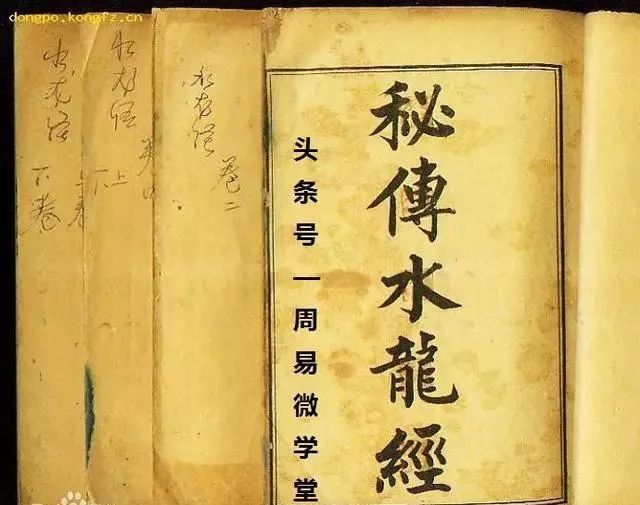 dongpo.kongfz.cn
秘傳水龍經
头条号一周易微学堂
水龙经 卷二
水龙经
上
下
水龙经
下卷